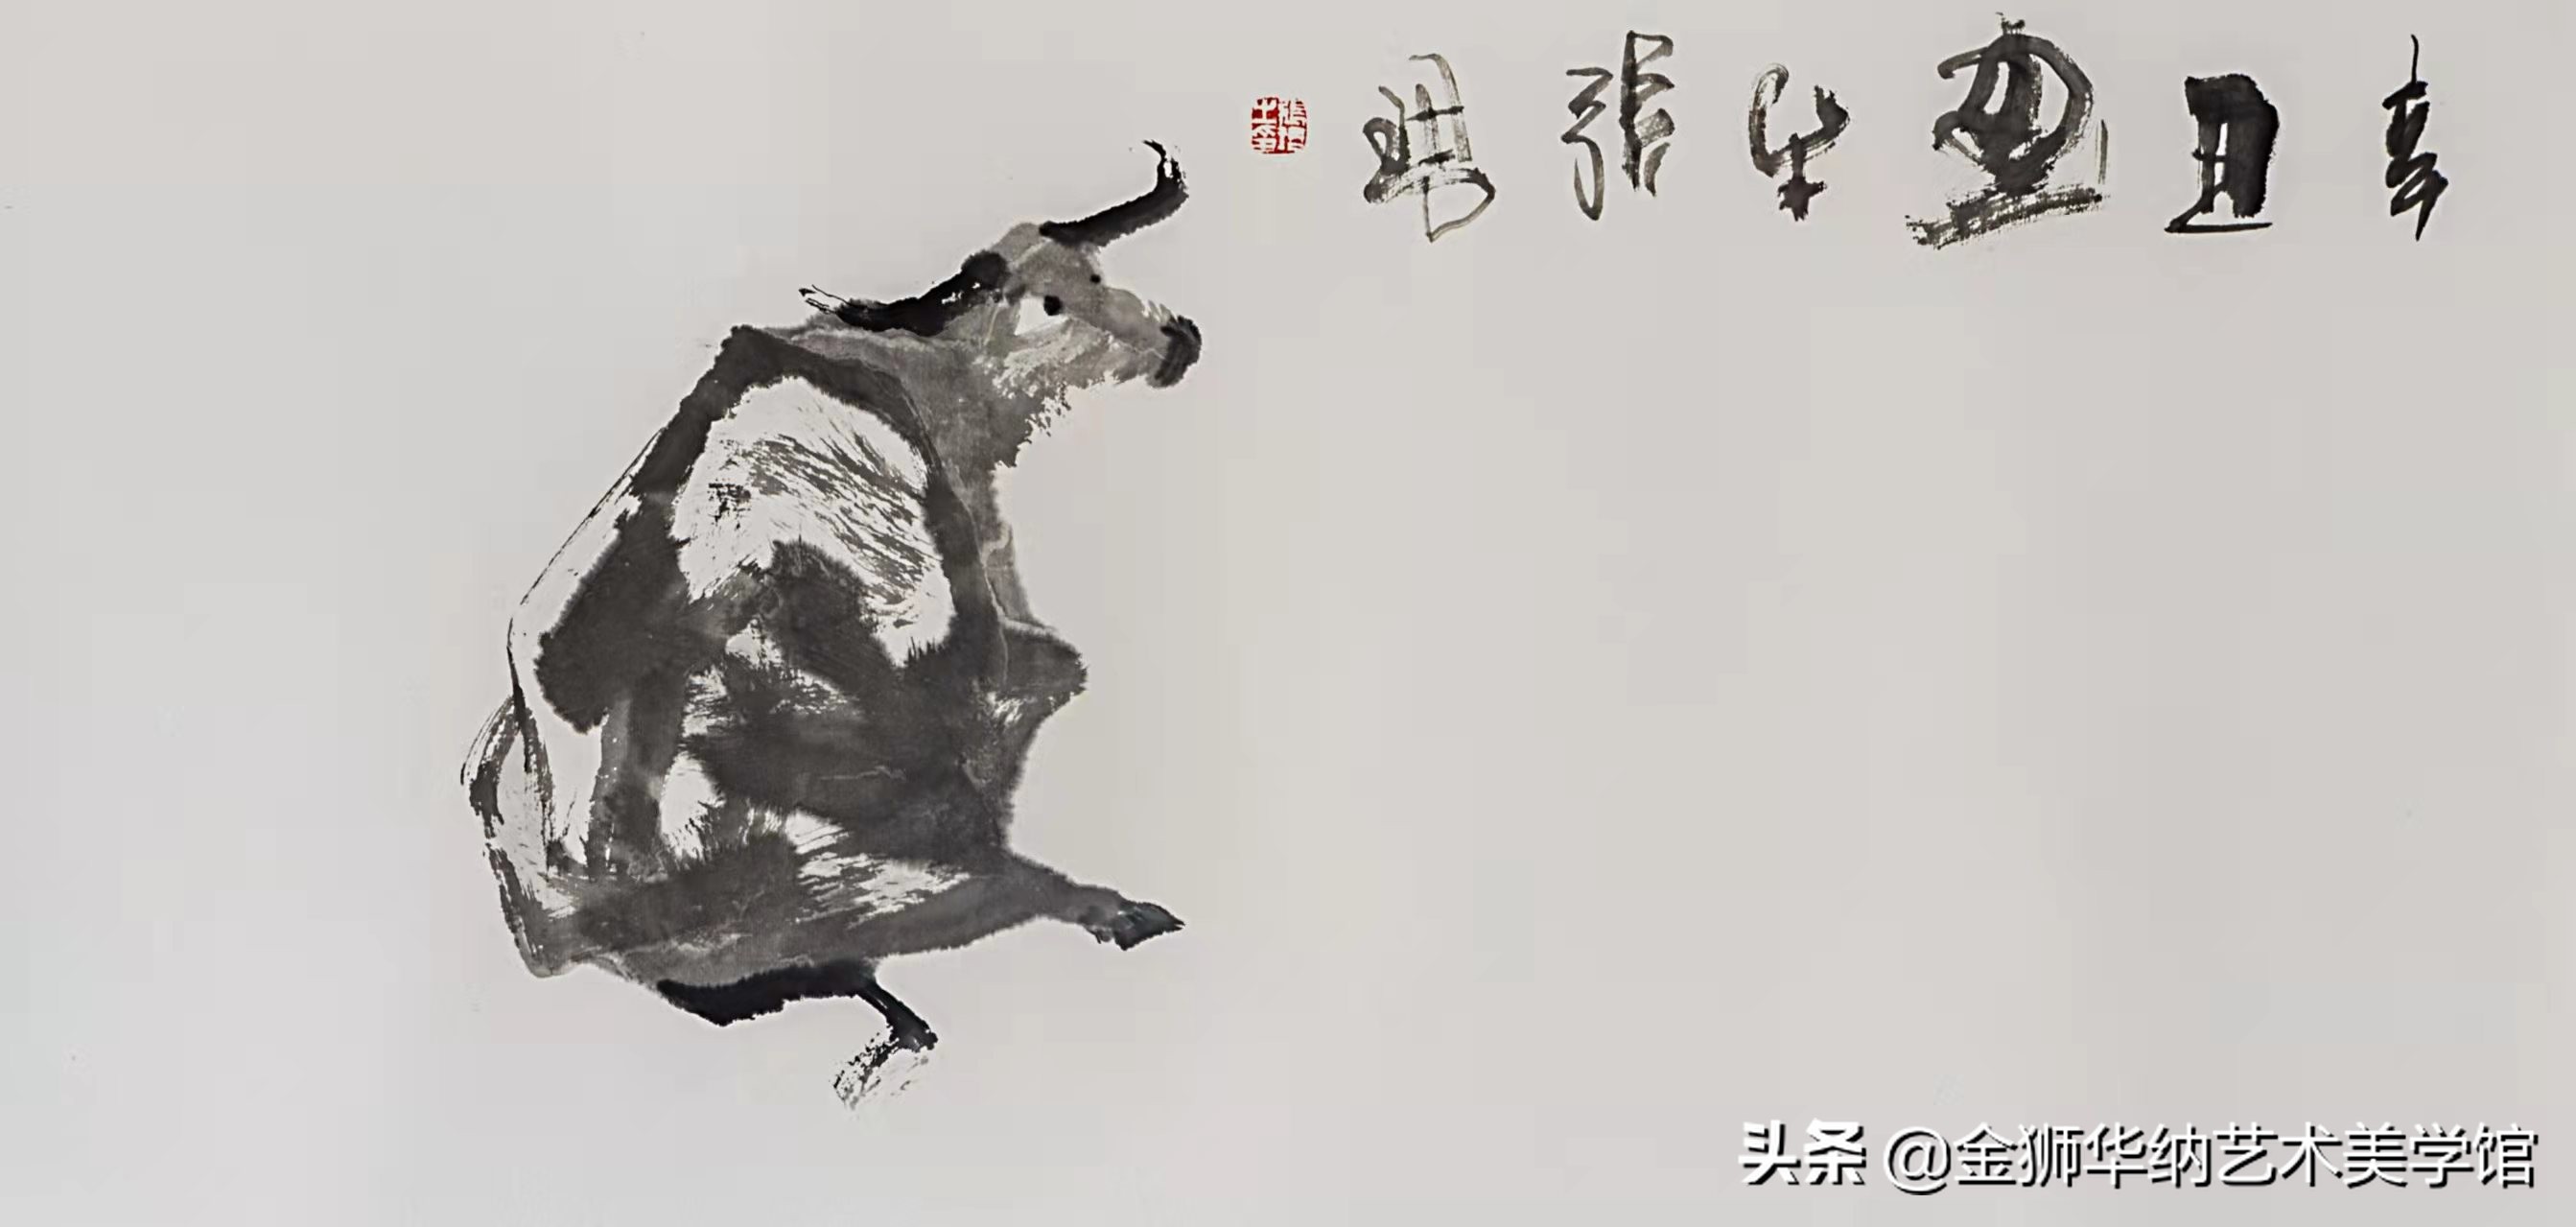 辛丑画牛張
头条 @金狮华纳艺术美学馆